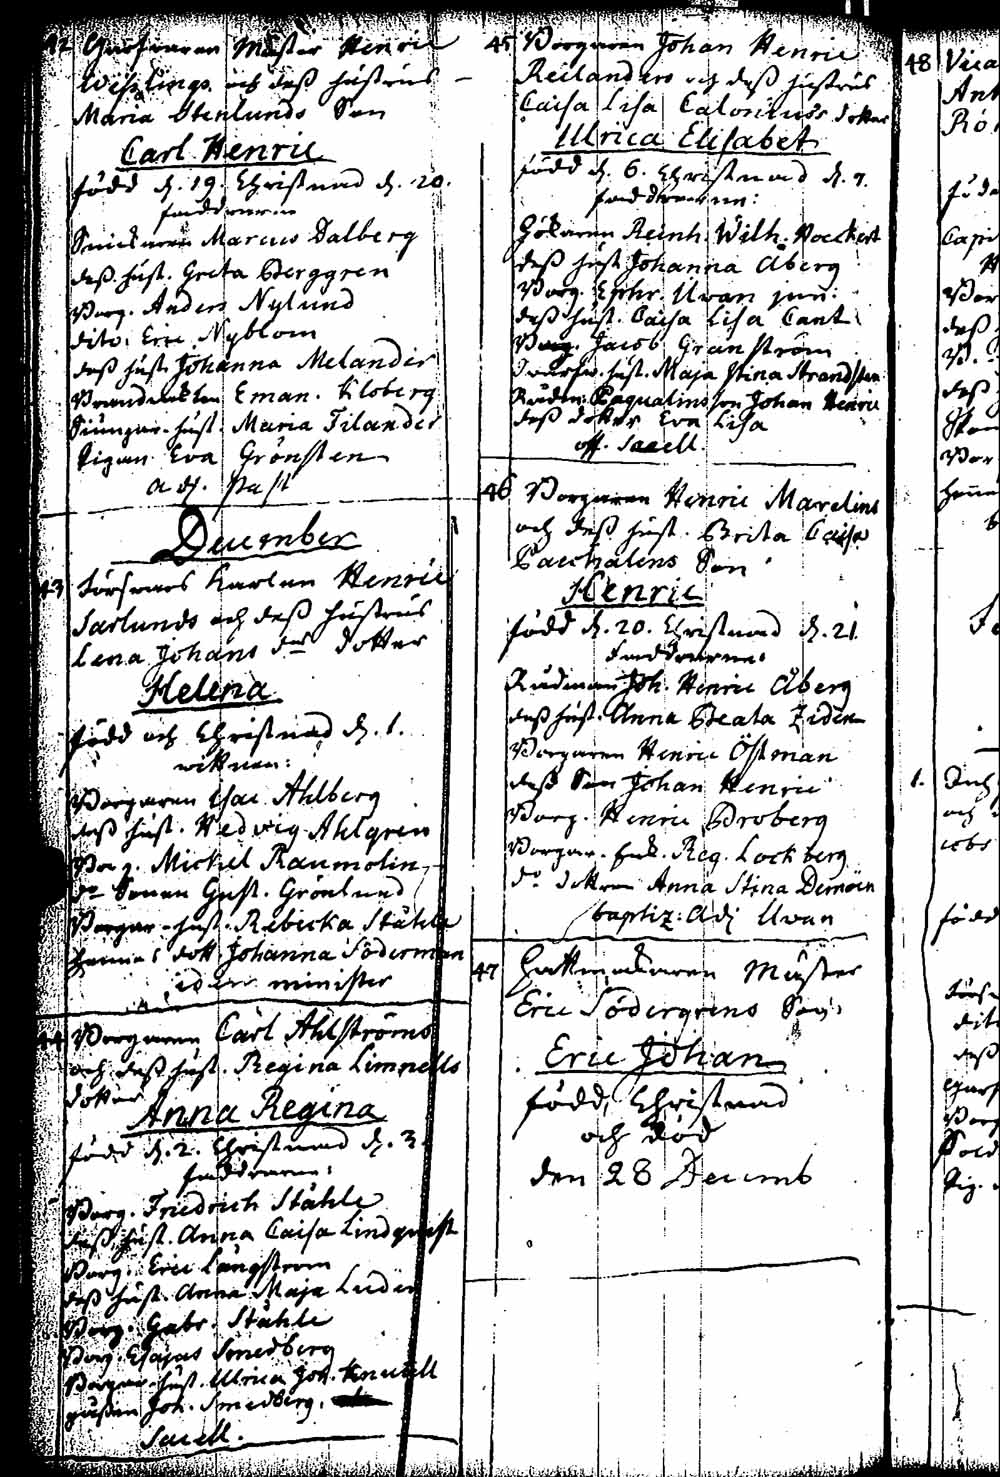 42 Garfvaren Mäster Henric
Wihlings och dess hustrus
Maria Stenlunds Son
Carl Henric
född d. 19. Christnad d. 20.
faddrarne
Snickaren Marcus Dalberg
dess hust. Greta Berggren
Borg. Anders Nylund
dito. Eric Nyblom
dess hust. Johanna Melander
Eman. Kloberg
hust. Maria Filander
Pigan Eva Grönsten
a dj. past
December
43 Karlen Henric
Sarlunds och dess hustrus
Lena Johans do dotter
Helena
född och Christnad d. 1.
wittnen:
Borgaren Isac Ahlberg
dess hust. Hedvig Ahlgren
Borg. Michel Raumolin
do Sonen Gust. Grönlund
Borgar-hust. Rebecka Ståhle
dott. Johanna Söderman
idem minister
44 Borgaren Carl Ahlströms
och dess hust. Regina Limnells
dotter
Anna Regina
född d. 2. Christnad d. 3.
faddrarne:
Borg. Friedrich Ståhle
dess hust. Anna Caisa Lindqvist
Borg. Eric Långström
dess hust. Anna Maja Luden
Borg. Gabr. Ståhle
Borg. Esajas Smedberg
Borgar-hust. Ulrica Joh.
Joh. Smedberg.
Sacell.
45 Borgaren Johan Henric
Reilanders och dess hustrus
Caisa Lisa Calonius's dotter
Ulrica Elisabet
född d. 6. Christnad d. 7.
faddrarne:
Reinh. Wilh. Hoeckert
dess hust Johanna Åberg
Borg. Ephr. Uvan jun:
dess hust. Caisa Lisa Cant
Borg. Jacob Granström
hust. Maja Stina Strandsten
son Johan Henric
dess dotter Eva Lisa
off. Sacell.
46 Borgaren Henric Marelius
och dess hust. Brita Caisa
Paschalius Son
Henric
född d. 20. Christnad d. 21.
faddrarne:
Rådman Joh. Henric Åberg
dess hust. Anna Beata Ziden
Borgaren Henric Östman
dess Son Johan Henric
Borg. Henric Broberg
Borgar. Reg. Lockberg
do dottren Anna Stina
baptiz: Adj Uvan
47 Hattmakaren Mäster
Eric Södergrens Son
Eric Johan
född, Christnad
och död
den 28 Decemb
48
1.
född